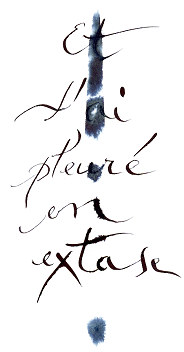 Et
J'ai
pleuré
en
extase